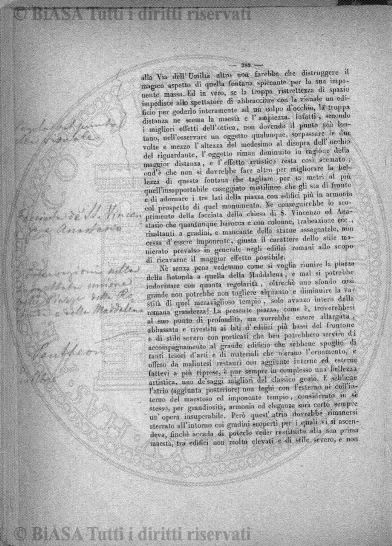 © BiASA Tutti i diritti riservati
alla Via dell'Umiltà altro non farebbe che distruggere il
magico aspetto di quella fontana spiccante per la sua impo-
nente massa. Ed in vero, se la troppa ristrettezza di spazio
impedisce allo spettatore di abbracciare con la visuale un edi-
ficio per goderlo interamente ad un colpo d'occhio, la troppa
distanza ne scema la maestà e l'ampiezza. Infatti, essendo
i migliori effetti dell'ottica, non dovendo il punto più lon-
tano, nell'osservare un oggetto qualunque, sorpassare le due
volte e mezzo l'altezza del medesimo al disopra dell'occhio
del riguardante, l'oggetto riman diminuito in ragione della
maggior distanza, e l'effetto artistico resta così scemato;
ond'è che non si dovrebbe fare altro per migliorare la bel-
lezza di questa fontana che tagliare per 10 metri al più
quell'insopportabile caseggiato meschino che gli sta di fronte
e di adornare i tre lati della piazza con edifici più in armonia
col prospetto di quel monumento. Ne conseguirebbe lo sco-
primento della facciata della chiesa di S. Vincenzo ed Ana-
stasio che quantunque barocca e con colonne, trabeazione ecc.,
risaltanti a gradini, e mancante della statue assegnatele, non
cessa di essere imponente, giusta il carattere dello stile ma-
nierato prevalso in generale negli edifici romani allo scopo
di ricavarne il maggior effetto possibile.
Nè senza pena vedremmo come si voglia riunire la piazza
della Rotonda a quella della Maddalena, e mal si potrebbe
indovinare con quanta regolarità, oltrechè uno sfondo così
grande non potrebbe non togliere altrettanto e diminuire la va-
stità di quel meraviglioso tempio, solo avanzo intero della
romana grandezza! La presente piazza, come è, troverebbesi
al suo punto di profondità, ma vorrebbe essere allargata,
abbassata e rivestita ai lati d'edifici più bassi del frontone
e di stile severo con porticati che ben potrebbero servire di
accompagnamento al grande edificio che sebbene spoglio di
tanti tesori d'arti e di materiali che n'erano l'ornamento, e
offeso da malintesi restauri con aggiunte interne ed esterne
fattevi a più riprese, è pur sempre in complesso una bellezza
artistica, uno de'saggi migliori del classico genio. E sebbene
l'atrio (aggiunta posteriore) non leghi con l'esterno nè coll'in-
terno del maestoso ed imponente tempio, considerato in sè
stesso, per grandiosità, armonia ed eleganza sarà certo sempre
un'opera insuperabile. Però quest'atrio dovrebbe rimanersi
sterrato all'intorno coi gradini scoperti per i quali vi si ascen-
deva, finchè accada di poterlo veder restituito alla sua prima
maestà, tra edifici non molto elevati e di stile severo, e non
© BiASA Tutti i diritti riservati